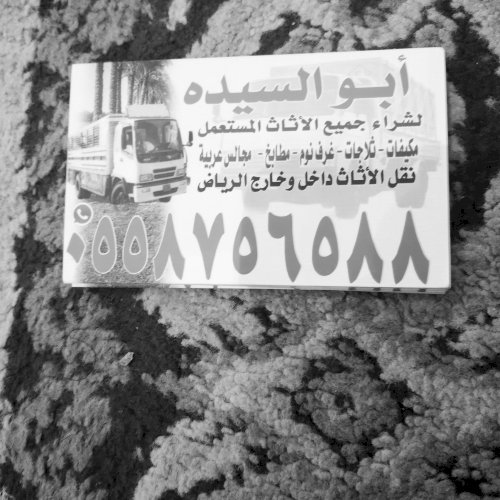 أبو السيده
لشراء جميع الأثاث المستعمل
مكيفات - ثلاجات - غرف نوم - مطابخ - مجالس عربية
نقل الأثاث داخل وخارج الرياض
٠٥٥٨٧٥٦٥٨٨